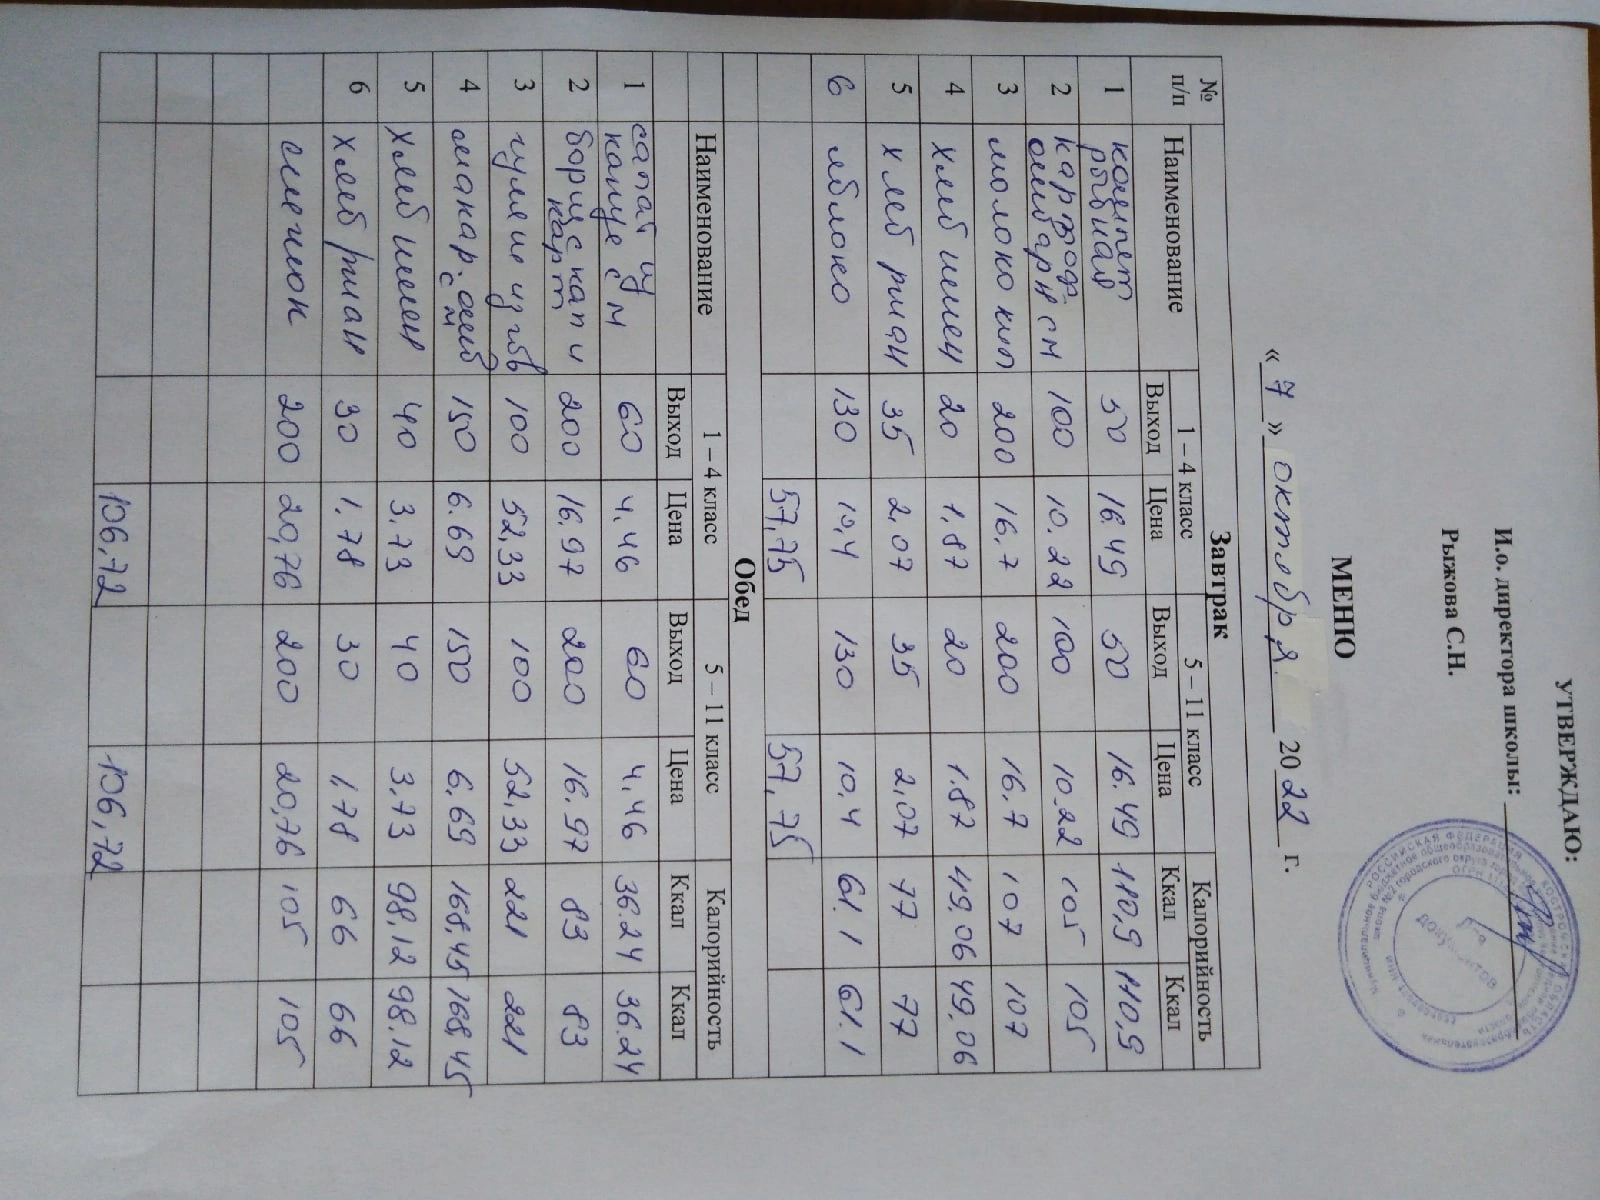 УТВЕРЖДАЮ:
И.о. директора школы:
Рыжова С.Н.
МЕНЮ
« 7 » октября 2022 г.
Завтрак
№ п/п Наименование 1 – 4 класс 5 – 11 класс Калорийность
Выход Цена Выход Цена Ккал Ккал
1 котлет рыбная 50 16.49 50 16.49 110,9 110,9
2 картоф отварн с м 100 10.22 100 10.22 105 105
3 молоко кип 200 16,7 200 16.7 107 107
4 хлеб пшен 20 1,87 20 1.87 49,06 49,06
5 хлеб ржан 35 2,07 35 2,07 77 77
6 яблоко 130 10,4 130 10,4 61.1 61.1
57,75 57,75
Обед
Наименование 1 – 4 класс 5 – 11 класс Калорийность
Выход Цена Выход Цена Ккал Ккал
1 салат из капус с м 60 4,46 60 4,46 36.24 36.24
2 борщ с кап и карт 200 16,97 200 16.97 83 83
3 гуляш из гов 100 52,33 100 52,33 221 221
4 макар. отв с м 150 6.69 150 6,69 168,45 168,45
5 хлеб пшен 40 3.73 40 3,73 98,12 98.12
6 хлеб ржан 30 1,78 30 1,78 66 66
200 20,76 200 20,76 105 105
106,72 106,72
РОССИЙСКАЯ ФЕДЕРАЦИЯ
Для документов